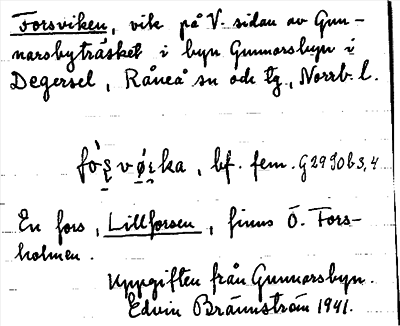 Forsviken, vik på V. sidan av Gun-
narsbyträsket i byn Gunnarsbyn i
Degersel, Råneå sn och tg., Norrb. l.
bf. fem. G 29 90 b 3, 4
En fors, Lillforsen, finns Ö. Fors-
holmen.
Uppgiften från Gunnarsbyn.
Edvin Brännström 1941.